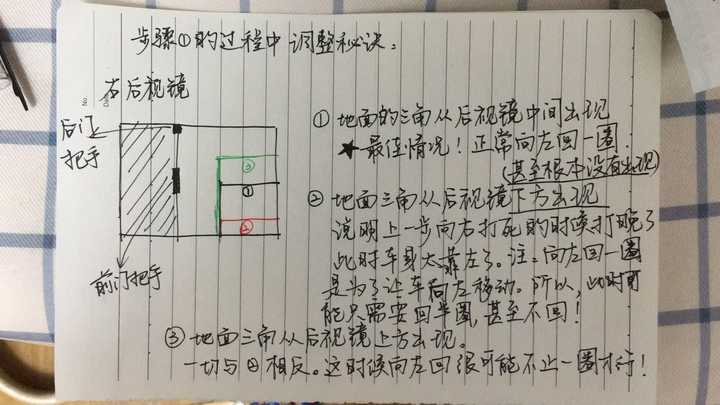 步骤①的过程中调整秘诀。
右后视镜
后门
把手
③
①
②
前门把手
① 地面的三角从后视镜中间出现
★最佳情况！正常向左回一圈.
(甚至根本没有出现)
② 地面三角从后视镜下方出现
说明上一步向右打死的时候打晚了
此时车身太靠左了。注:向左回一圈
是为了让车向左移动。所以，此时可
能只需要回半圈,甚至不回！
③ 地面三角从后视镜上方出现。
一切与②相反。这时候向左回很可能不止一圈才行！